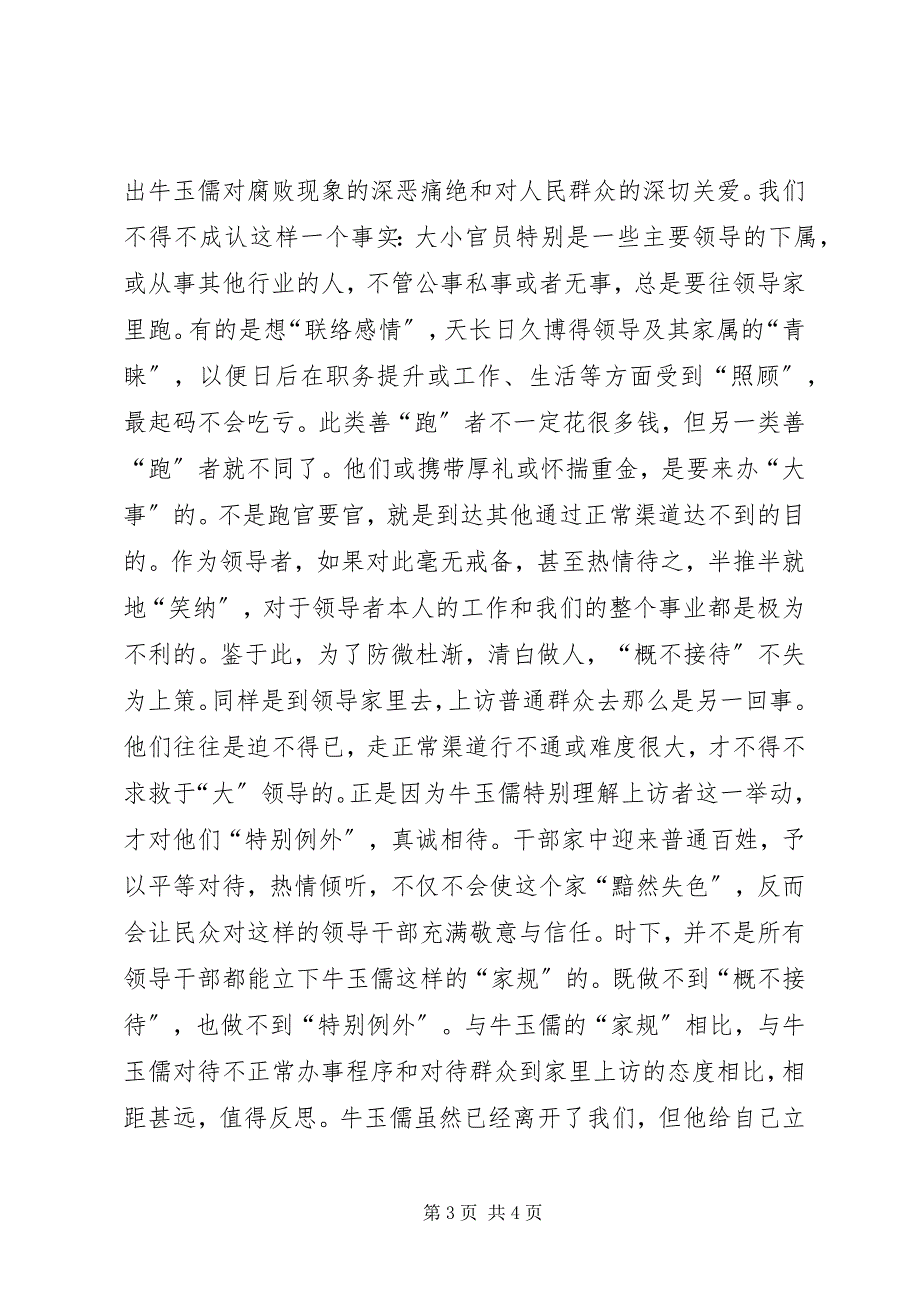 出牛玉儒对腐败现象的深恶痛绝和对人民群众的深切关爱。我们
不得不成认这样一个事实：大小官员特别是一些主要领导的下属，
或从事其他行业的人，不管公事私事或者无事，总是要往领导家
里跑。有的是想“联络感情〞,天长日久博得领导及其家属的“青
睐〞，以便日后在职务提升或工作、生活等方面受到“照顾〞，
最起码不会吃亏。此类善“跑〞者不一定花很多钱，但另一类善
“跑〞者就不同了。他们或携带厚礼或怀揣重金，是要来办“大
事〞的。不是跑官要官，就是到达其他通过正常渠道达不到的目
的。作为领导者，如果对此毫无戒备，甚至热情待之，半推半就
地“笑纳〞，对于领导者本人的工作和我们的整个事业都是极为
不利的。鉴于此，为了防微杜渐，清白做人，“概不接待〞不失
为上策。同样是到领导家里去,上访普通群众去那么是另一回事。
他们往往是迫不得已，走正常渠道行不通或难度很大，才不得不
求救于“大〞领导的。正是因为牛玉儒特别理解上访者这一举动，
才对他们“特别例外〞，真诚相待。干部家中迎来普通百姓，予
以平等对待，热情倾听，不仅不会使这个家“黯然失色〞，反而
会让民众对这样的领导干部充满敬意与信任。时下，并不是所有
领导干部都能立下牛玉儒这样的“家规〞的。既做不到“概不接
待〞，也做不到“特别例外〞。与牛玉儒的“家规〞相比，与牛
玉儒对待不正常办事程序和对待群众到家里上访的态度相比，相
距甚远，值得反思。牛玉儒虽然已经离开了我们，但他给自己立
第 3 页 共 4 页